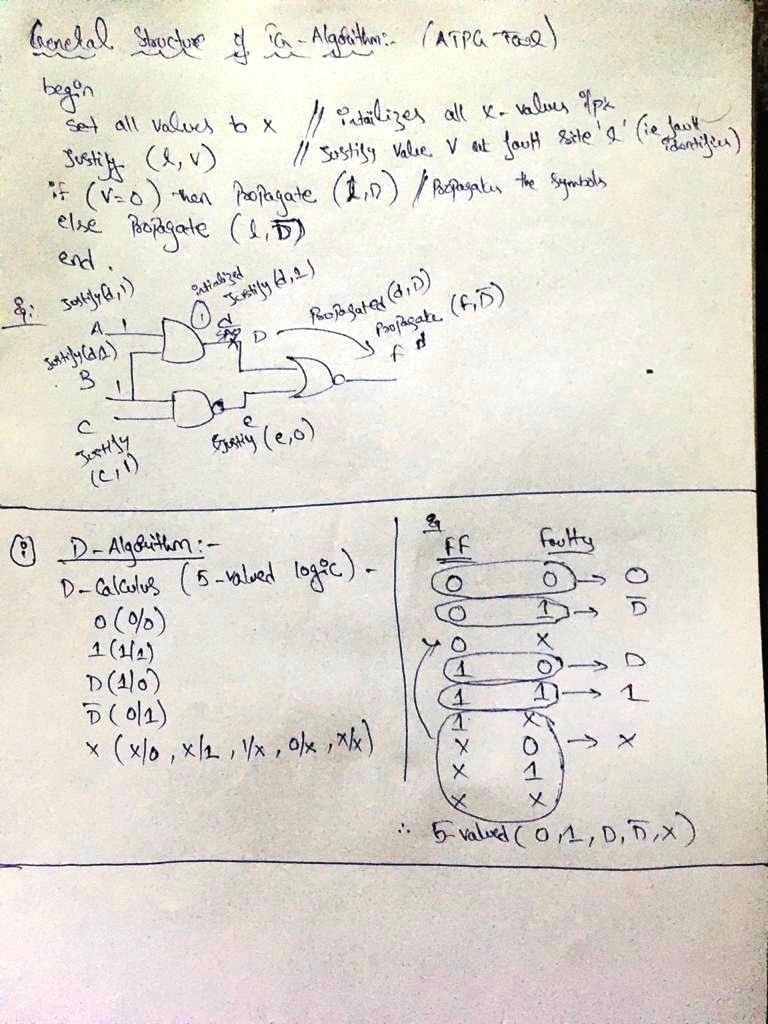 General Structure of TG-Algorithm:- (ATPG Tool)
begin
set all values to x // intailizes all x-values
Justify (l, v) // Justify value V at fault site 'l' (ie fault identifier)
if (V=0) then Propagate (l, D) // Propagates the symbols
else Propagate (l, D̅)
end.
Eg:
Justify(d,1)
intialized
Justify(d,1)
A 1
1
d
D
Propagated(d,D)
Propagate (f, D̅)
Justify(d1)
B 1
f
C
e
Justify (e,0)
Justify
(c,1)
i D-Algorithm:-
D-Calculus (5-valued logic) -
0 (0/0)
1 (1/1)
D (1/0)
D̅ (0/1)
x (x/0, x/1, 1/x, 0/x, x/x)
Eg
FF Faulty
0 0 → 0
0 1 → D̅
0 x
1 0 → D
1 1 → 1
1 x
x 0 → x
x 1
x x
∴ 5-valued (0,1,D,D̅,x)